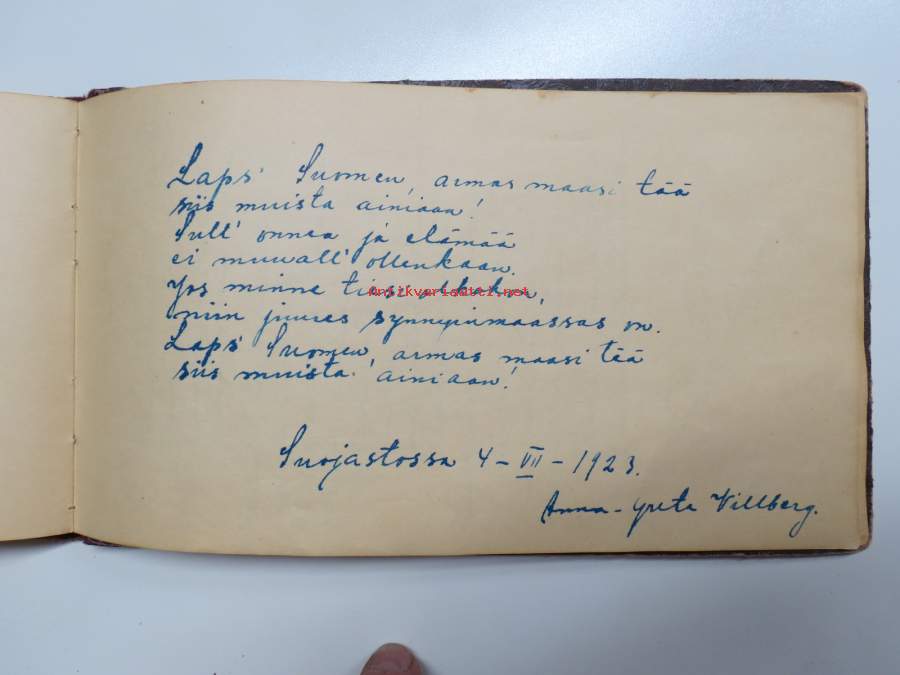 Laps' Suomen, armas maasi tää
siis muista ainiaan!
Sull' onnea ja elämää
ei muuall' ollenkaan.
Jos minne tiesi
antikvariaatti.net
niin juures synnyinmaassas on.
Laps' Suomen, armas maasi tää
siis muista ainiaan!
Suojastossa 4-VII-1923.
Anna-Greta Villberg.